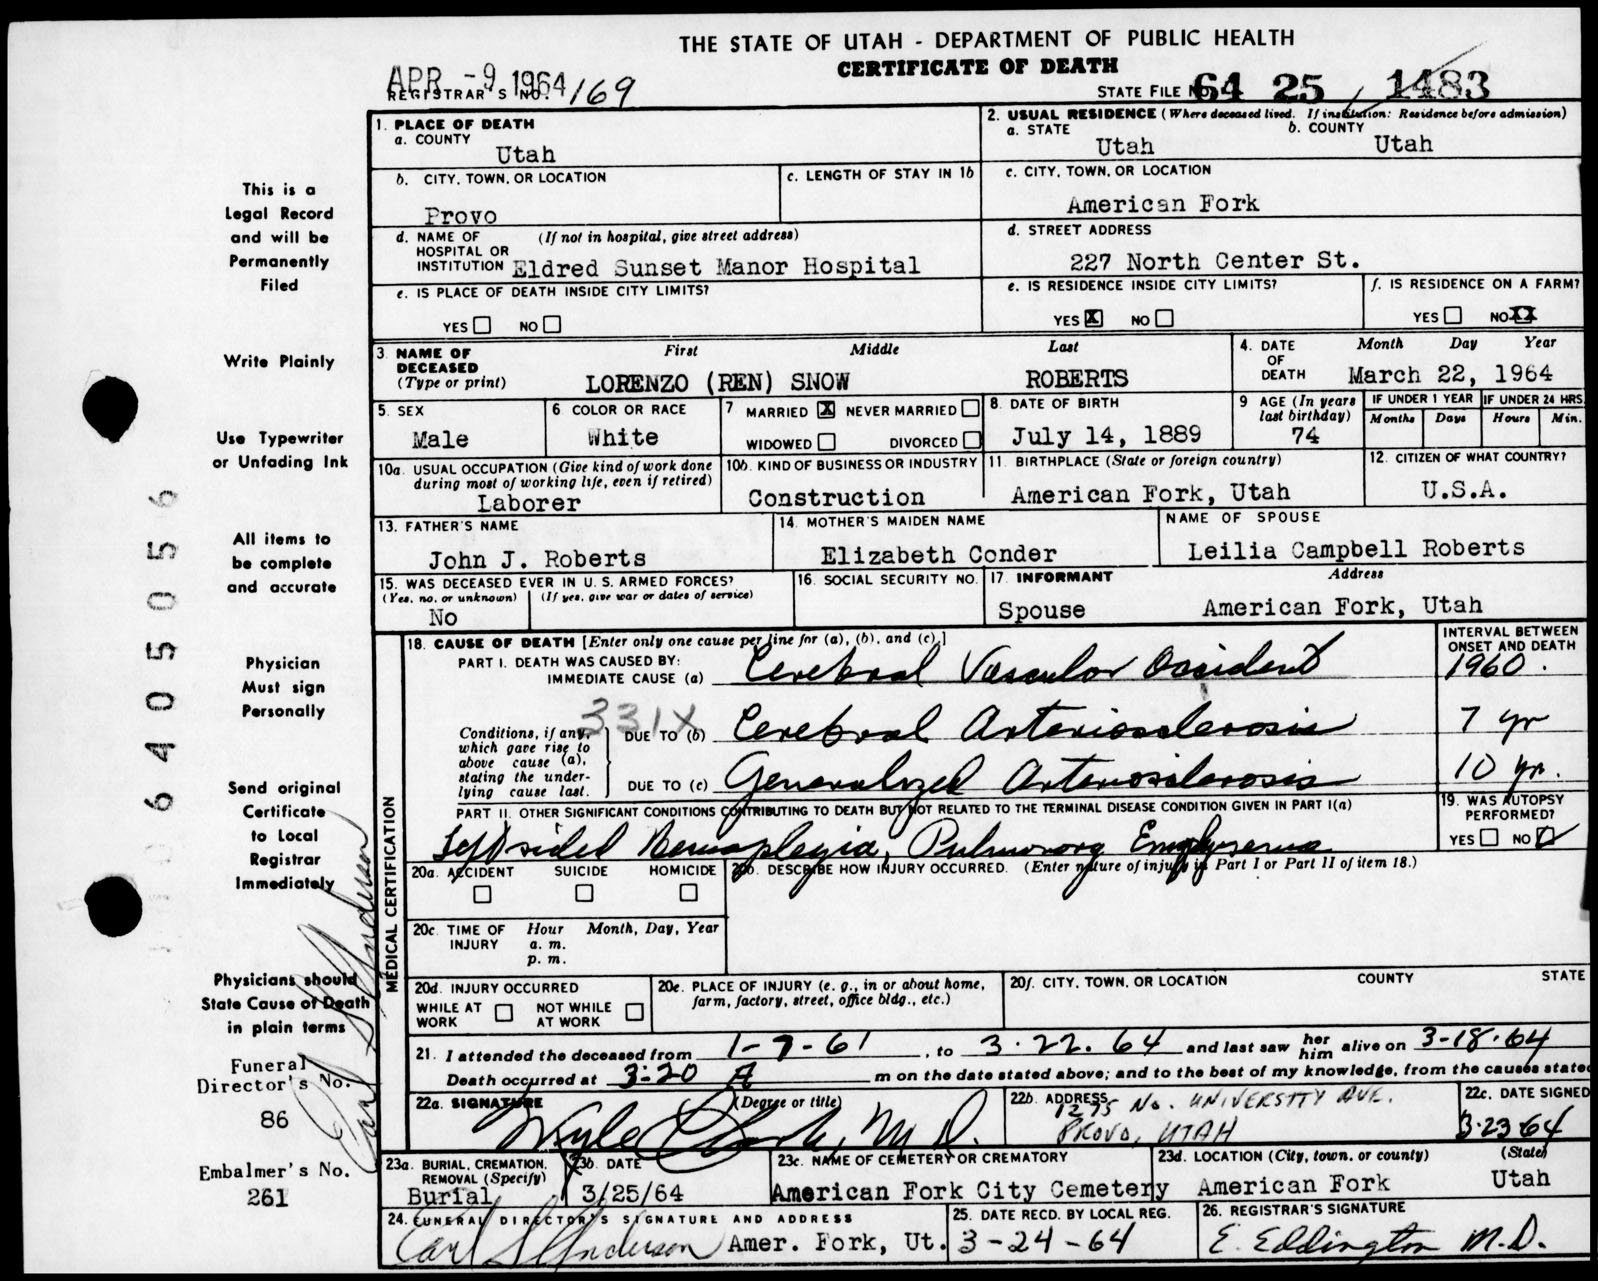 THE STATE OF UTAH - DEPARTMENT OF PUBLIC HEALTH
CERTIFICATE OF DEATH
APR -9 1964
REGISTRAR'S NO. 169
STATE FILE NO. 64 25 1483
1. PLACE OF DEATH
a. COUNTY
Utah
2. USUAL RESIDENCE (Where deceased lived. If institution: Residence before admission)
a. STATE b. COUNTY
Utah Utah
b. CITY, TOWN, OR LOCATION
Provo
c. LENGTH OF STAY IN 1b
c. CITY, TOWN, OR LOCATION
American Fork
d. NAME OF HOSPITAL OR INSTITUTION (If not in hospital, give street address)
Eldred Sunset Manor Hospital
d. STREET ADDRESS
227 North Center St.
e. IS PLACE OF DEATH INSIDE CITY LIMITS?
YES NO
e. IS RESIDENCE INSIDE CITY LIMITS?
YES X NO
f. IS RESIDENCE ON A FARM?
YES NO XX
3. NAME OF DECEASED (Type or print)
First Middle Last
LORENZO (REN) SNOW ROBERTS
4. DATE OF DEATH
Month Day Year
March 22, 1964
5. SEX
Male
6 COLOR OR RACE
White
7 MARRIED X NEVER MARRIED
WIDOWED DIVORCED
8. DATE OF BIRTH
July 14, 1889
9 AGE (In years last birthday)
74
IF UNDER 1 YEAR IF UNDER 24 HRS.
Months Days Hours Min.
10a. USUAL OCCUPATION (Give kind of work done during most of working life, even if retired)
Laborer
10b. KIND OF BUSINESS OR INDUSTRY
Construction
11. BIRTHPLACE (State or foreign country)
American Fork, Utah
12. CITIZEN OF WHAT COUNTRY?
U.S.A.
13. FATHER'S NAME
John J. Roberts
14. MOTHER'S MAIDEN NAME
Elizabeth Conder
NAME OF SPOUSE
Leilia Campbell Roberts
15. WAS DECEASED EVER IN U. S. ARMED FORCES?
(Yes, no, or unknown) (If yes, give war or dates of service)
No
16. SOCIAL SECURITY NO.
17. INFORMANT Address
Spouse American Fork, Utah
18. CAUSE OF DEATH [Enter only one cause per line for (a), (b), and (c).]
INTERVAL BETWEEN ONSET AND DEATH
PART I. DEATH WAS CAUSED BY:
IMMEDIATE CAUSE (a) Cerebral Vascular Accident 1960.
331X
Conditions, if any, which gave rise to above cause (a), stating the underlying cause last.
DUE TO (b) Cerebral Arteriosclerosis 7 yr
DUE TO (c) Generalized Arteriosclerosis 10 yr.
PART II. OTHER SIGNIFICANT CONDITIONS CONTRIBUTING TO DEATH BUT NOT RELATED TO THE TERMINAL DISEASE CONDITION GIVEN IN PART I(a)
Left sided Hemaplegia, Pulmonary Emphysema
19. WAS AUTOPSY PERFORMED?
YES NO
20a. ACCIDENT SUICIDE HOMICIDE
20b. DESCRIBE HOW INJURY OCCURRED. (Enter nature of injury in Part I or Part II of item 18.)
20c. TIME OF INJURY Hour Month, Day, Year
a. m.
p. m.
20d. INJURY OCCURRED
WHILE AT WORK NOT WHILE AT WORK
20e. PLACE OF INJURY (e. g., in or about home, farm, factory, street, office bldg., etc.)
20f. CITY, TOWN, OR LOCATION COUNTY STATE
21. I attended the deceased from 1-7-61, to 3.22.64 and last saw her him alive on 3-18.64
Death occurred at 3:20 A m on the date stated above; and to the best of my knowledge, from the causes stated
22a. SIGNATURE (Degree or title)
Wyle Clark, M.D.
22b. ADDRESS
1275 No. UNIVERSITY AVE.
PROVO, UTAH
22c. DATE SIGNED
3-23-64
23a. BURIAL, CREMATION, REMOVAL (Specify)
Burial
23b. DATE
3/25/64
23c. NAME OF CEMETERY OR CREMATORY
American Fork City Cemetery
23d. LOCATION (City, town, or county) (State)
American Fork Utah
24. FUNERAL DIRECTOR'S SIGNATURE AND ADDRESS
Carl S Anderson Amer. Fork, Ut.
25. DATE RECD. BY LOCAL REG.
3-24-64
26. REGISTRAR'S SIGNATURE
E. Eddington M.D.
MEDICAL CERTIFICATION
This is a
Legal Record
and will be
Permanently
Filed
Write Plainly
Use Typewriter
or Unfading Ink
All items to
be complete
and accurate
Physician
Must sign
Personally
Send original
Certificate
to Local
Registrar
Immediately
Physicians should
State Cause of Death
in plain terms
Funeral
Director's No.
86
Embalmer's No.
261
Carl S Anderson
0640 5056